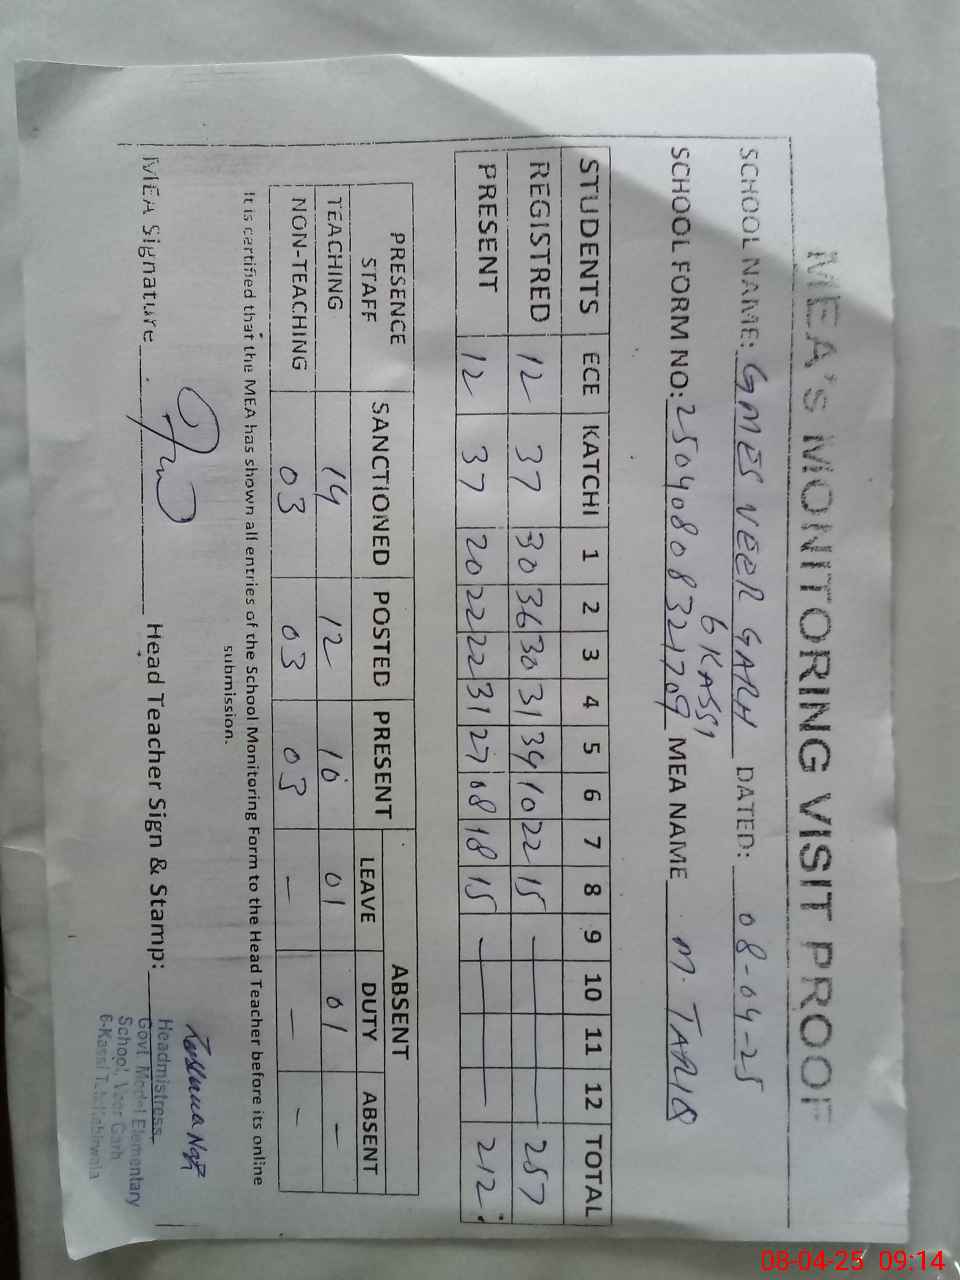 MEA's MONITORING VISIT PROOF
SCHOOL NAME: GMES VEER GARH DATED: 08-04-25
6 KASSI
SCHOOL FORM NO: 25040808321709 MEA NAME M. TARIQ
STUDENTS ECE KATCHI 1 2 3 4 5 6 7 8 9 10 11 12 TOTAL
REGISTRED 12 37 30 36 30 31 34 10 22 15 — 257
PRESENT 12 37 20 22 22 31 27 08 18 15 — 212
PRESENCE STAFF SANCTIONED POSTED PRESENT ABSENT
LEAVE DUTY ABSENT
TEACHING 14 12 10 01 01 —
NON-TEACHING 03 03 03 — — —
It is certified that the MEA has shown all entries of the School Monitoring Form to the Head Teacher before its online
submission.
MEA Signature Head Teacher Sign & Stamp:
Headmistress
Govt Model Elementary
School, Veer Garh
6-Kassi
08-04-25 09:14